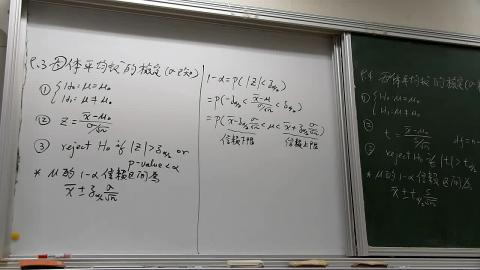 P.3 母体平均數的檢定(σ已知)
① { H₀: μ = μ₀
H₁: μ ≠ μ₀
② Z = (x̄ - μ₀)/(σ/√n)
③ reject H₀ if |Z| > z_{α/2} or
p-value < α
* μ的 1-α 信賴區間為
x̄ ± z_{α/2} σ/√n
1-α = P(|Z| < z_{α/2})
= P(-z_{α/2} < (x̄ - μ)/(σ/√n) < z_{α/2})
= P(x̄ - z_{α/2} σ/√n < μ < x̄ + z_{α/2} σ/√n)
信賴下限 信賴上限
P.4 母体平均數的檢定(σ
① { H₀: μ = μ₀
H₁: μ ≠ μ₀
② t = (x̄ - μ₀)/ df = n-
③ reject H₀ if |t| > t_{α/2}
* μ的 1-α 信賴區間為
x̄ ± t_{α/2} s/√n